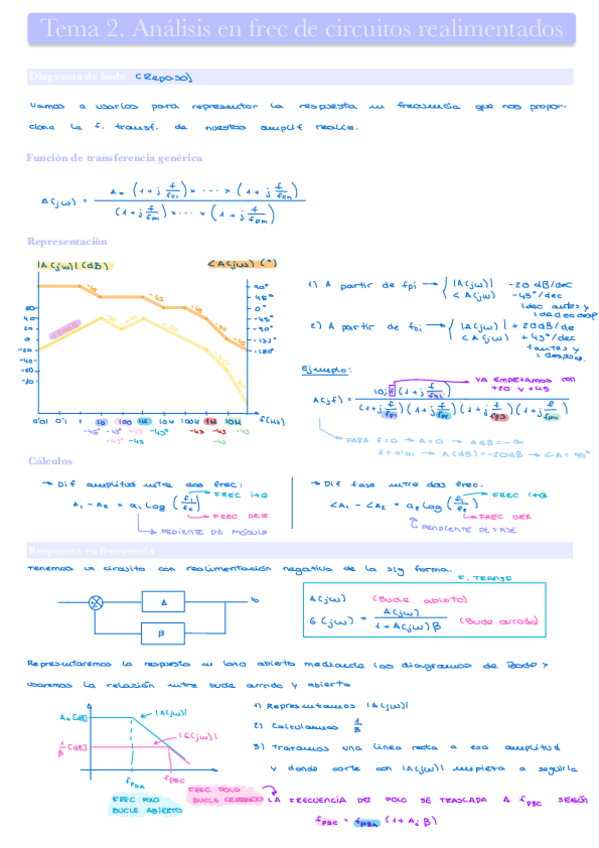 Tema 2. Análisis en frec de circuitos realimentados
Diagrama de bode (Repaso)
Vamos a usarlos para representar la respuesta en frecuencia que nos propor-
ciona la f. transf. de nuestro amplif realim.
Función de transferencia genérica
A(jω) = Am (1+j f/fc1) × ··· × (1+j f/fcn) / (1+j f/fp1) × ··· × (1+j f/fpm)
Representación
|A(jω)|(dB)
∠A(jω)(°)
90°
45°
0°
-45°
-90°
-135°
-180°
0'01 0'1 1 10 100 1K 10K 100K 1M 10M f(Hz)
1) A partir de fpi → |A(jω)| -20 dB/dec
∠A(jω) -45°/dec
1dec antes y
1 dec desp
2) A partir de fci → |A(jω)| +20dB/de
∠A(jω) +45°/dec
1 antes y
1 despues.
Ejemplo:
YA EMPEZAMOS CON
+20 Y +45
PARA f=0 → A=0 → AdB=-∞
f=0'01 → A(dB)=-20dB → ∠A=90°
Cálculos
→ Dif amplitud entre dos frec:
A1 - A2 = a1 log (f1/f2)
FREC IZQ
FREC DER
PEDIENTE DE MÓDULO
→ Dif fase entre dos frec.
∠A1 - ∠A2 = a2 log (f1/f2)
FREC IZQ
FREC DER
PENDIENTE DE FASE
Respuesta en frecuencia
Tenemos un circuito con realimentación negativa de la sig forma.
F. TRANSF
A
β
A(jω) (Bucle abierto)
G(jω) = A(jω) / 1+A(jω)β (Bucle cerrado)
Representaremos la respuesta en lazo abierto mediante los diagramas de Bode y
usaremos la relación entre bucle cerrado y abierto
A0 [dB]
|A(jω)|
|G(jω)|
1/β [dB]
fPBA
fPBC
FREC POLO
BUCLE ABIERTO
FREC POLO
BUCLE CERRADO
1) Representamos |A(jω)|
2) Calculamos 1/β
3) Trazamos una linea recta a esa amplitud
y donde corte con |A(jω)| empieza a seguirla
LA FRECUENCIA DEL POLO SE TRASLADA A fPBC SEGÚN
fPBC = fPBA (1+A0β)